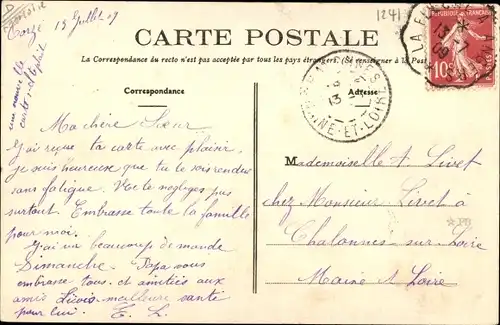 Corzé 13 Juillet 09
1241
CARTE POSTALE
La Correspondance du recto n'est pas acceptée par tous les pays étrangers. (Se renseigner à la Poste
Correspondance
Adresse
10c
MAINE-ET-LOIRE
Ma chère Sœur
J'ai reçue ta carte avec plaisir,
je suis heureuse que tu te sois rendue
sans fatigue. Ne te négliges pas
surtout. Embrasse toute la famille
pour moi.
J'ai eu beaucoup de monde
Dimanche. Papa vous
embrasse tous. et amitiés aux
amis meilleure santé
pour lui. E. L.
Mademoiselle A. Livet
chez Monsieur Livet à
Chalonnes-sur-Loire
Maine & Loire